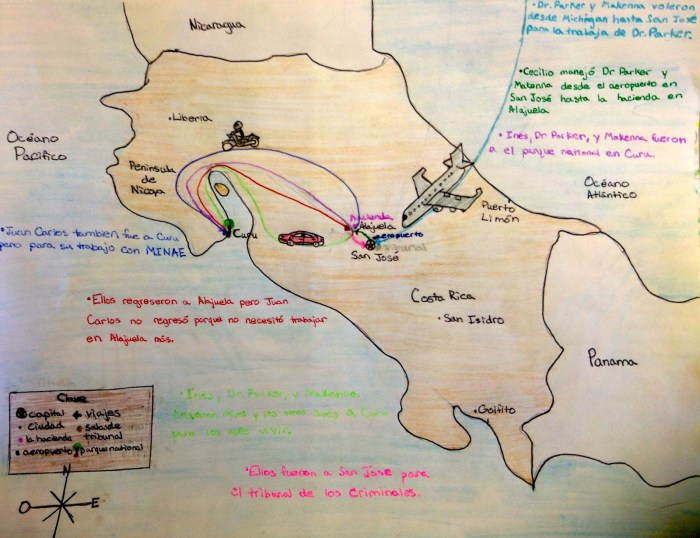 •Dr. Parker y Makenna voleron
desde Michigan hasta San José
para la trabaja de Dr. Parker.
Nicaragua
•Cecilio manejó Dr Parker y
Makenna desde el aeropuerto en
San José hasta la hacienda en
Alajuela
•Liberia
•Ines, Dr. Parker, y Makenna fueron
a el parque national en Curu
Océano
Pacífico
Peninsula
de
Nicoya
Océano
Atlántico
Puerto
Limón
hacienda
Alajuela
aeropuerto
tribunal
San José
Curu
•Juan Carlos tambien fue a Curu
pero para su trabajo con MINAE
•Ellos regreseron a Alajuela pero Juan
Carlos no regresó porque no necesitó trabajar
en Alajuela más.
Costa Rica
•San Isidro
Panama
•Golfito
Clave
capital
viajes
ciudad
sala de
tribunal
la hacienda
aeropuerto
parque national
•Ines, Dr. Parker, y Makenna
a Curu
para vivir.
•Ellos fueron a San Jose para
el tribunal de los Criminales.
N
O
E